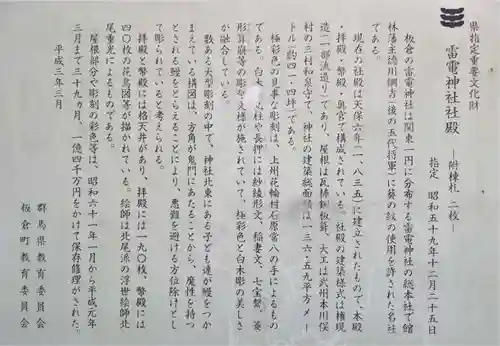 県指定重要文化財
雷電神社社殿 ―附棟札 二枚―
指定 昭和五十九年十二月二十五日
板倉の雷電神社は関東一円に分布する雷電神社の総本社で館
林藩主徳川綱吉(後の五代将軍)に葵の紋の使用を許された名社
である。
現在の社殿は天保六年(一八三五)に建立されたもので、本殿
・拝殿・幣殿・奥宮で構成されている。社殿の建築様式は権現
造(一部流造り)であり、屋根は瓦棒銅板葺、大工は武州本川俣
村の三村和泉守で、神社の建築総面積は一三六・五九平方メー
トル(約四一・四坪)である。
極彩色の見事な彫刻は、上州花輪村石原常八の手によるもの
である。白木の丸柱や長押には紗綾形文、稲妻文、七宝繋、菱
形算崩等の彫刻文様が施されていて、極彩色と白木彫の美しさ
が融合している。
数ある大型彫刻の中で、神社北東にある子ども達が鰻をつか
まえている構図は、方角が鬼門にあたることから、魔性を持つ
とされる鰻をとらえることにより、悪難を避ける方位除けとし
て彫られていると考えられる。
拝殿と幣殿には格天井があり、拝殿には一九〇枚、幣殿には
四〇枚の花鳥図等が描かれている。絵師は北尾派の浮世絵師北
尾重光によるものである。
屋根部分や彫刻の彩色等は、昭和六十一年一月から平成元年
三月まで三十九ヵ月、一億四千万円をかけて保存修理がされた。
平成三年三月
群馬県教育委員会
板倉町教育委員会